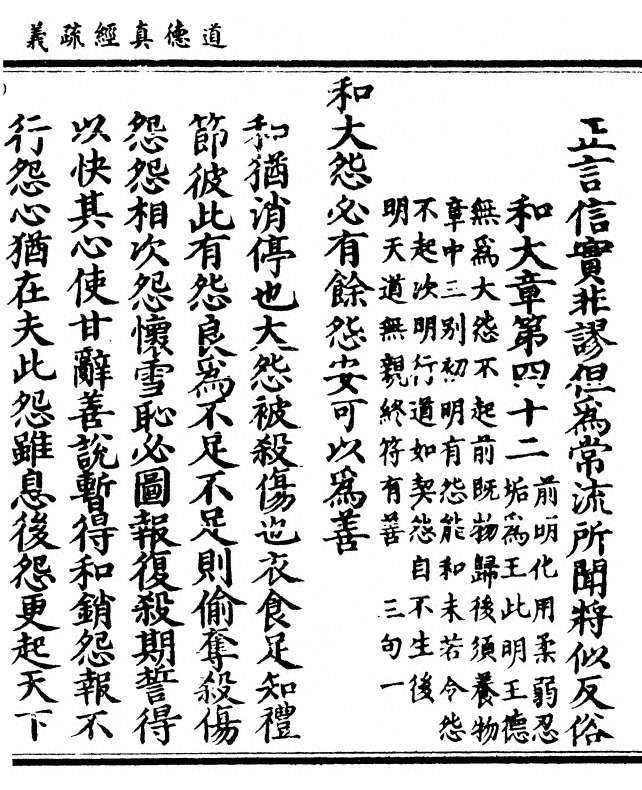 道德真經疏義
正言信實非謬但爲常流所聞將似反俗
和大章第四十二
前明化用柔弱忍
垢爲王此明王德
無爲大怨不起前既物歸後須養物
章中三別初明有怨能和未若令怨
不起次明行道如契怨自不生後
明天道無親終符有善 三句一
和大怨必有餘怨安可以爲善
和猶消停也大怨被殺傷也衣食足知禮
節彼此有怨良爲不足不足則偷奪殺傷
怨怨相次怨懷雪恥必圖報復殺期誓得
以快其心使甘辭善說暫得和銷怨報不
行怨心猶在夫此怨雖息後怨更起天下